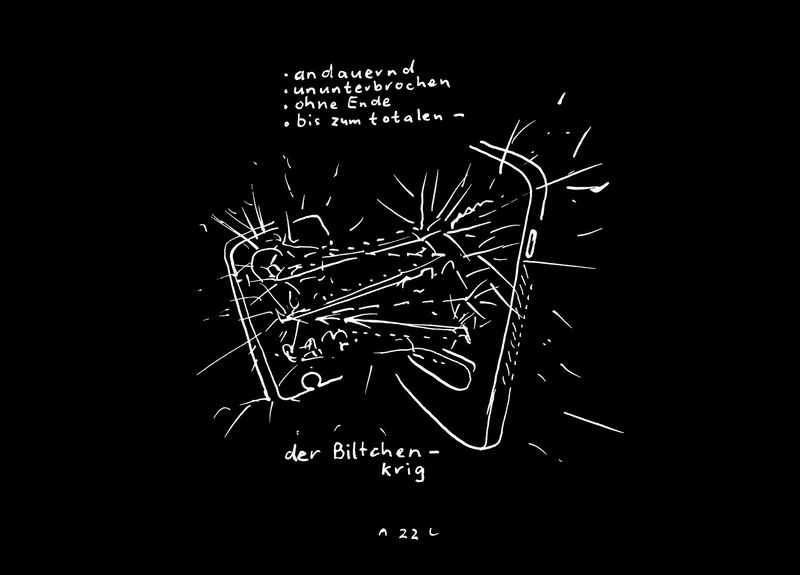 • andauernd
• ununterbrochen
• ohne Ende
• bis zum totalen –
der Biltchen –
krig
22